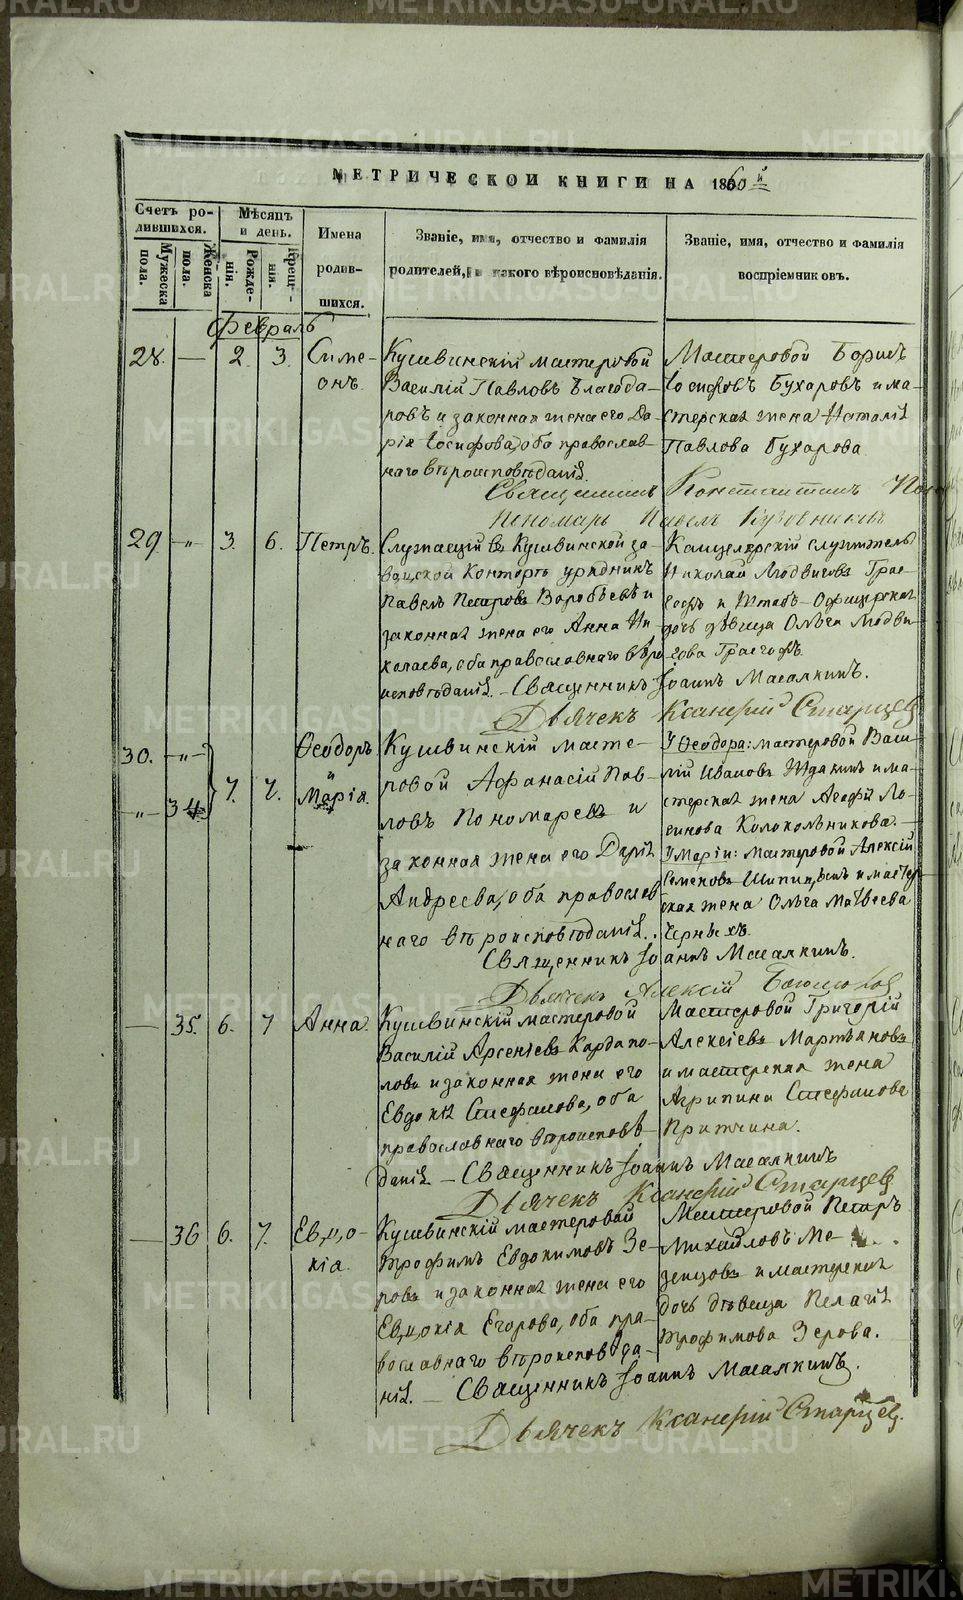 МЕТРИЧЕСКОЙ КНИГИ НА 1860й
Счетъ ро-
дившихся.
Мѣсяцъ
и день.
Имена
родив-
шихся.
Званіе, имя, отчество и фамилія
родителей, и какого вѣроисповѣданія.
Званіе, имя, отчество и фамилія
воспріемниковъ.
Мужеска
пола.
Женска
пола.
Рожде-
нія.
Креще-
нія.
Февраль
28. — 2. 3. Симе-
онъ.
Кушвинскій мастеровой
Василій Павловъ Благода-
ровъ и законная жена его Да-
рія Іосифова, оба православ-
наго вѣроисповѣданія.
Мастеровой Борисъ
Іосифовъ Бухаровъ и ма-
стерская жена Наталія
Павлова Бухарова
Священникъ Константинъ
Пономарь Павелъ
29. —„— 3. 6. Петръ.
Служащій въ Кушвинской за-
водской Конторѣ урядникъ
Павелъ Петровъ Воробьевъ и
законная жена его Анна Ни-
колаева, оба православнаго вѣро-
исповѣданія. — Священникъ Іоаннъ Масалкинъ.
Канцелярскій служитель
Николай Людвиговъ Грас-
гофъ и Штабъ-Офицерская
дочь дѣвица Ольга Людви-
гова Грасгофъ.
Дьячекъ Ксанфій Старцев
30. —„—
—„— 34
7. 7.
Ѳеодоръ
и
Марія.
Кушвинскій масте-
ровой Афанасій Пав-
ловъ Пономаревъ и
законная жена его Дарія
Андреева, оба православ
наго вѣроисповѣданія.
У Ѳеодора: мастеровой Васи-
лій Ивановъ Ждакинъ и ма-
стерская жена Агафія Ло-
гинова Колокольникова. —
У Маріи: Мастеровой Алексій
Семеновъ Шипицынъ и мастер-
ская жена Ольга Матвѣева
Черныхъ.
Священникъ Іоаннъ Масалкинъ.
Дьячекъ Алексій
— 35. 6. 7 Анна.
Кушвинскій мастеровой
Василій Арсеніевъ Кардапо-
ловъ и законная жена его
Евдокія Стефанова, оба
православнаго вѣроисповѣ-
данія. — Священникъ Іоаннъ Масалкинъ
Мастеровой Григорій
Алексіевъ Мартьяновъ
и мастерская жена
Агрипина Стефанова
Притчина.
Дьячекъ Ксанфій Старцев
— 36 6. 7. Евдо-
кія.
Кушвинскій мастеровой
Трофимъ Евдокимовъ Зе-
ровъ и законная жена его
Евдокія Егорова, оба пра-
вославнаго вѣроисповѣда-
нія. — Священникъ Іоаннъ Масалкинъ.
Мастеровой Петръ
Михайловъ Ме-
зенцовъ и мастерская
дочь дѣвица Пелагія
Трофимова Зерова.
Дьячекъ Ксанфій Старцев.
METRIKI.GASO-URAL.RU